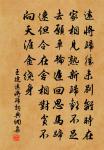 遠將歸勝未別離時在
家相見熟新歸歡不足
去願車輪遲回思馬蹄
速但令在舍相對貧不
向天涯金繞身
王建遠將歸